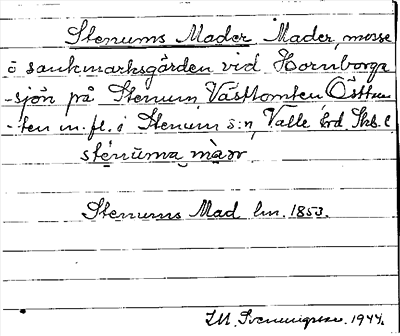 Stenums Mader Mader, mosse
o sankmarksgården vid Hornborga
-sjön på Stenum, Västtomten Östtom
-ten m.fl. i Stenum s:n, Valle hd Skb. l
stenuma màar
Stenums Mad lm. 1853.
1944.